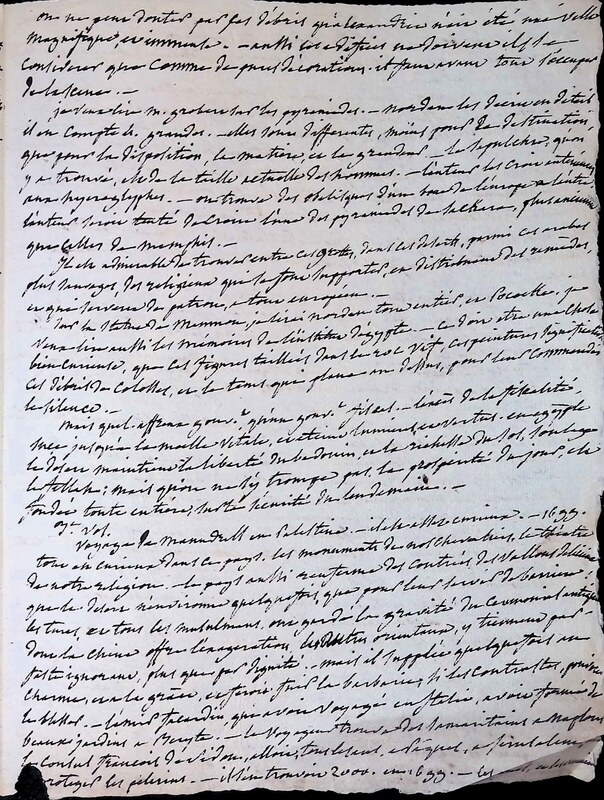 on ne peut douter par ses débris qu'alexandrie n'ait été une ville
magnifique, et immense. — aussi ces édifices ne doivent ils se
considérer que comme de pures décorations. il faut avant tout s'occuper
de la scene. —
je veux lire m. grobert sur les pyramides. — norden les décrit en détail
il en compte 4. grandes. — elles sont différentes, moins pour la destruction
que pour la disposition, la matière, et la grandeur. — le sépulchre, qu'on
y a trouvé, est de la taille actuelle des hommes. — l'auteur les croit antérieures
aux hyeroglyphes. — on trouve des obélisques d'un bout de l'europe à l'autre
l'auteur seroit tenté de croire l'une des pyramides de sackara, plus ancienne
que celles de memphis. —
Il est admirable de trouver entre ces grottes, dans ces déserts, parmi ces arabes
plus sauvages, des religieux qui se font supporter, en distribuant des remèdes,
et qui servent de patrons, a tout européen. —
sur la statue de Memnon, je lirai norden tout entier, et Pococke. je
veux lire aussi les mémoires de l'institut d'egypte. — ce doit être une chose
bien curieuse, que ces figures taillées dans le roc vif, ces peintures,
ces débris de colosses, et le tems que plane au dessus, pour leur commander
le silence. —
Mais quel affreux gouv.t qu'un gouv.t fiscal. — l'excès de la fiscalité
suce jusqu'à la moelle vitale, et éteint lumières, et vertus. en egypte
le désert maintient la liberté du bedouin, et la richesse du sol, soulage
le fellah; mais qu'on ne s'y trompe pas, la prospérité du jour, est
fondée toute entière, sur la sécurité du lendemain. —
Voyage de maundrell en Palestine. — il est assez curieux. — 1699.
tout est curieux dans ce pays. les monuments de nos chevaliers, le théâtre
de notre religion. — le pays aussi renferme des contrées, des vallons délicieux
que le désert environne quelquefois, que pour leur servir de barrière.
les turcs, et tous les musulmans, ont gardé la gravité du cérémonial antique
dont la chine offre l'exagération. les orientaux, y tiennent par
faste ignorant, plus que par dignité. — mais il supplée quelquefois au
charme, et à la grâce, et feroit fuir la barbarie, si les contrastes, pouvoient
la blesser. — l'émir facardin, qui avoit voyagé en Italie, avoit formé de
beaux jardins a Beryte. — le voyageur trouva des samaritains a naplouse
le consul françois de Seidon, alloit, tous les ans, a Pâques, a jerusalem,
protéger les pelerins. — il s'en trouvoit 2000. en 1699. — les